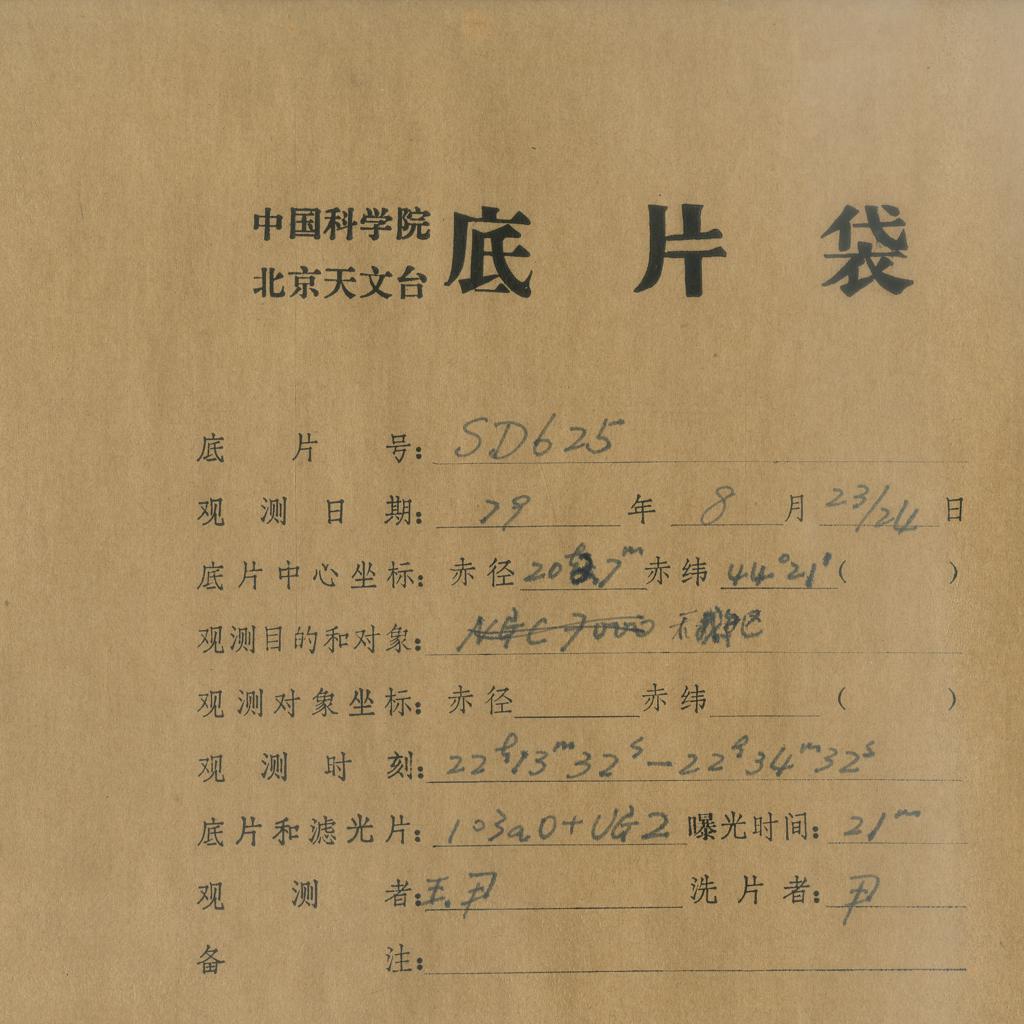 中国科学院
北京天文台
底片袋
底片号：SD625
观测日期：79年8月23/24日
底片中心坐标：赤径20ʰ27ᵐ赤纬44°21′（ ）
观测目的和对象：NGC7000 天鹅区
观测对象坐标：赤径 赤纬 （ ）
观测时刻：22ʰ13ᵐ32ˢ—22ʰ34ᵐ32ˢ
底片和滤光片：103aO+UG2 曝光时间：21ᵐ
观测者：王.尹 洗片者：尹
备注：